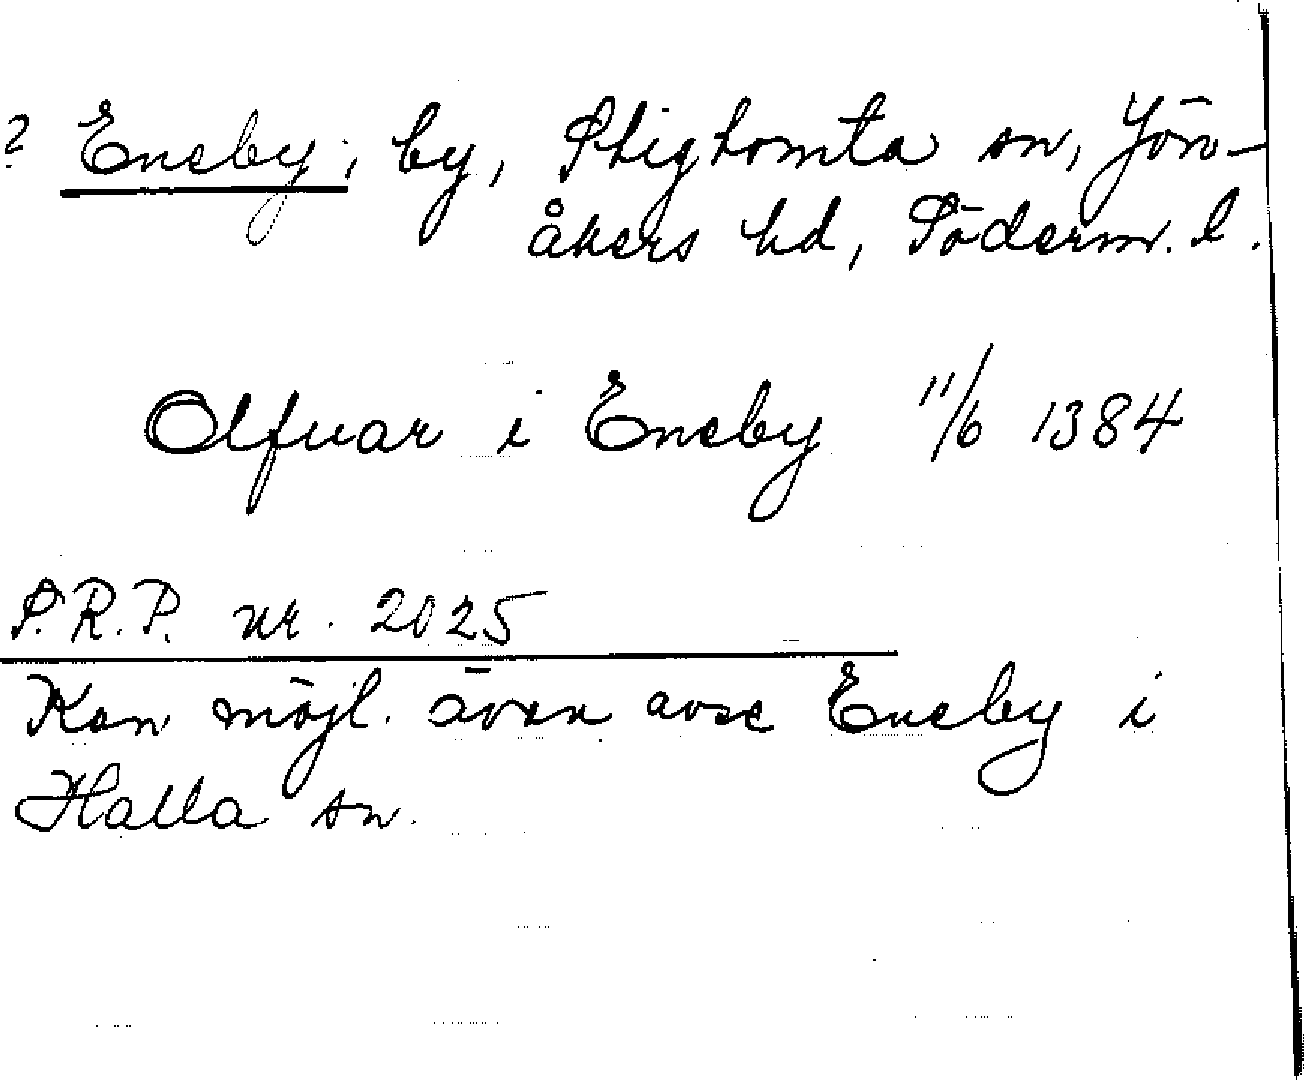 ? Eneby, by, Stigtomta sn, Jön-
åkers hd, Söderm. l.
Olfuar i Eneby 11/6 1384
S.R.P. nr. 2025
Kan möjl. även avse Eneby i
Halla sn.